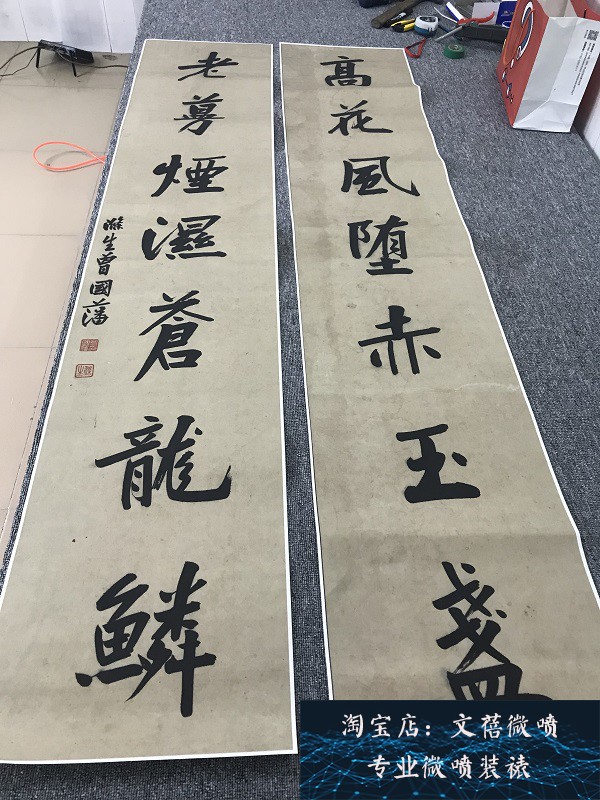 髙花風堕赤玉盞
老蔓煙濕蒼龍鱗
滌生曾國藩
淘宝店：文蓓微喷
专业微喷装裱